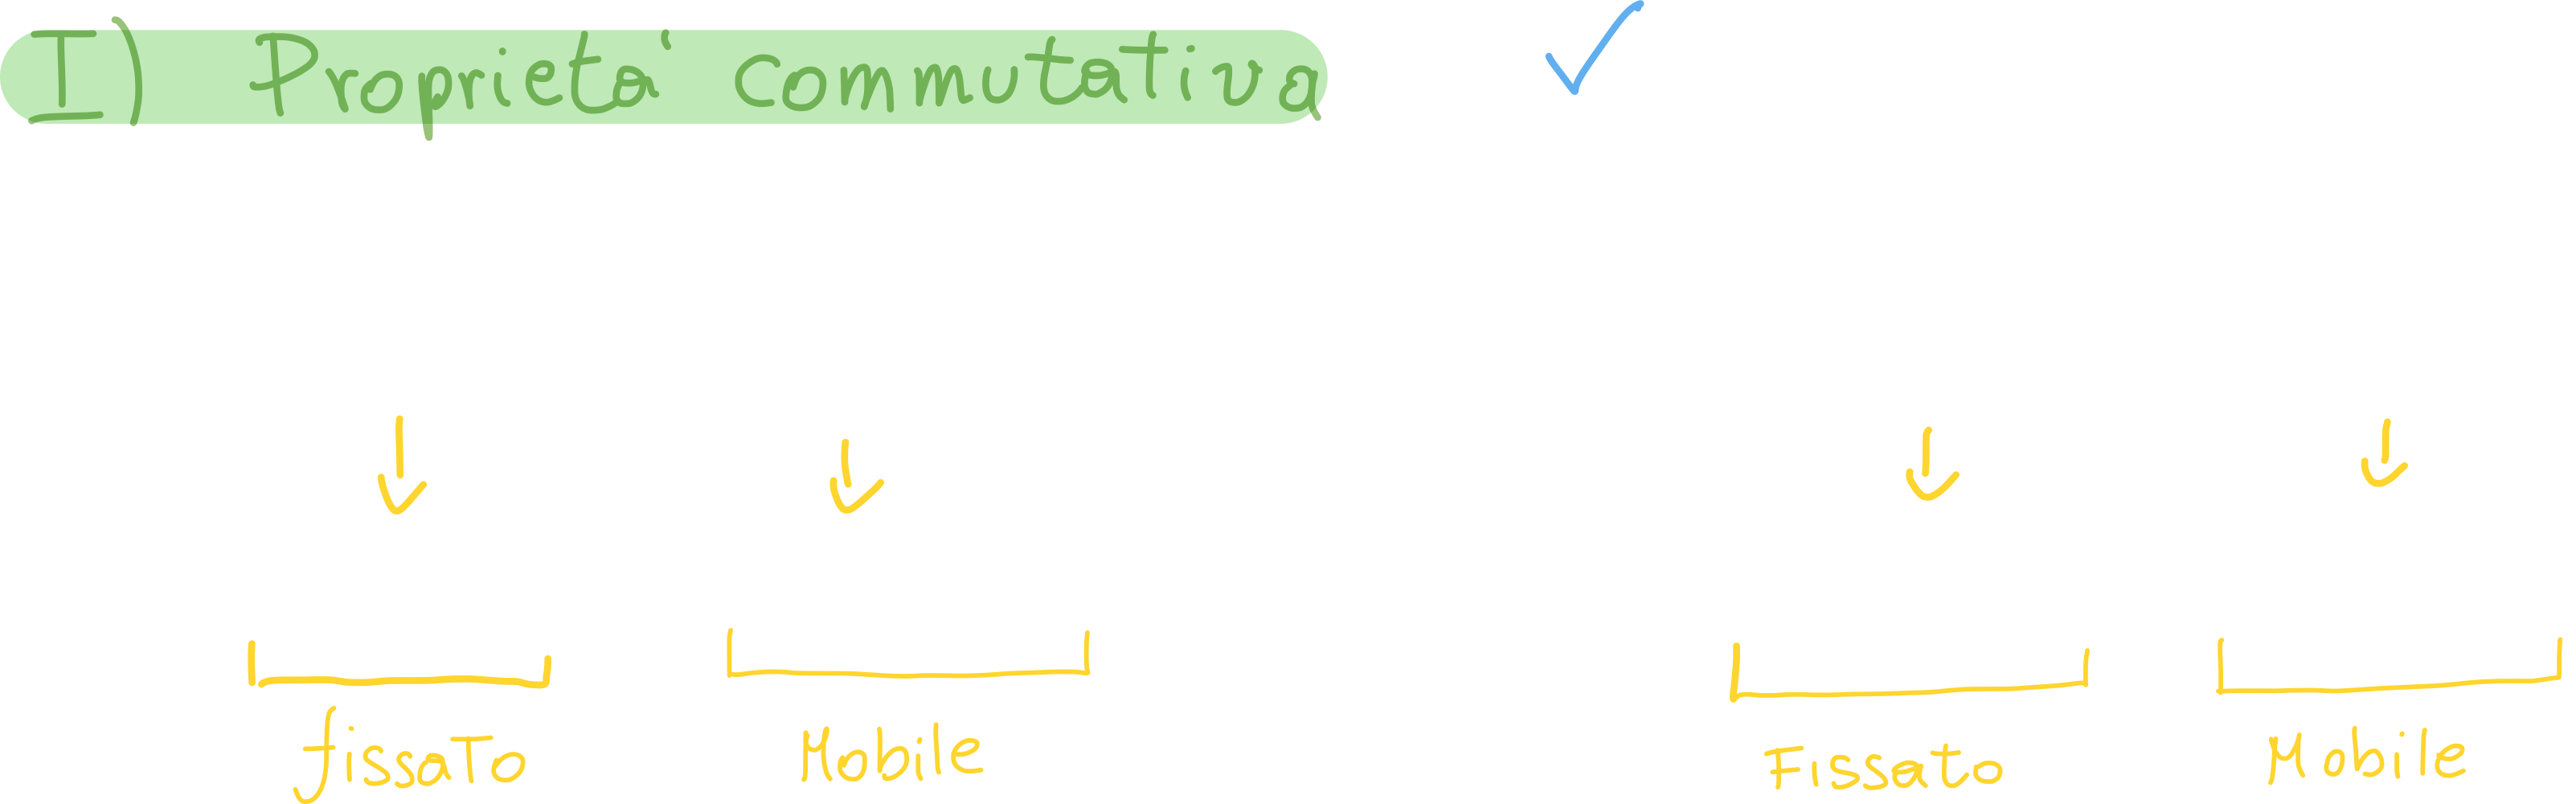 I) Proprieta' commutativa
fissato Mobile Fissato Mobile